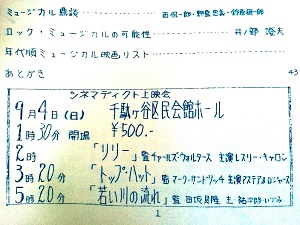 ミュージカル鼎談
ロック・ミュージカルの可能性 井ノ部 澄夫
年代順ミュージカル映画リスト
あとがき 43
シネマディクト上映会
9月4日(日) 千駄ヶ谷区民会館ホール
1時30分 開場 ¥500.-
2時 「リリー」監 チャールズ・ウォルタース 主演 レスリー・キャロン
3時20分 「トップ・ハット」監 マーク・サンドリッチ 主演 アステア&ロジャース
5時20分 「若い川の流れ」監 田坂具隆 主 裕次郎・いづみ
1